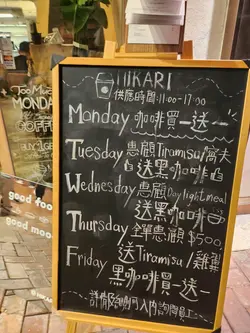 HIKARI
供應時間:11:00-17:00
Monday 咖啡買一送一
Tuesday 惠顧Tiramisu/窩夫
送黑咖啡
Wednesday 惠顧Daylight meal
送黑咖啡
Thursday 全單惠顧$500,
Friday 送Tiramisu/雞翼
黑咖啡買一送一
詳情
入內詢問員工
Too Much
MONDAY
COFFEE
BUY 1
good food
good mood